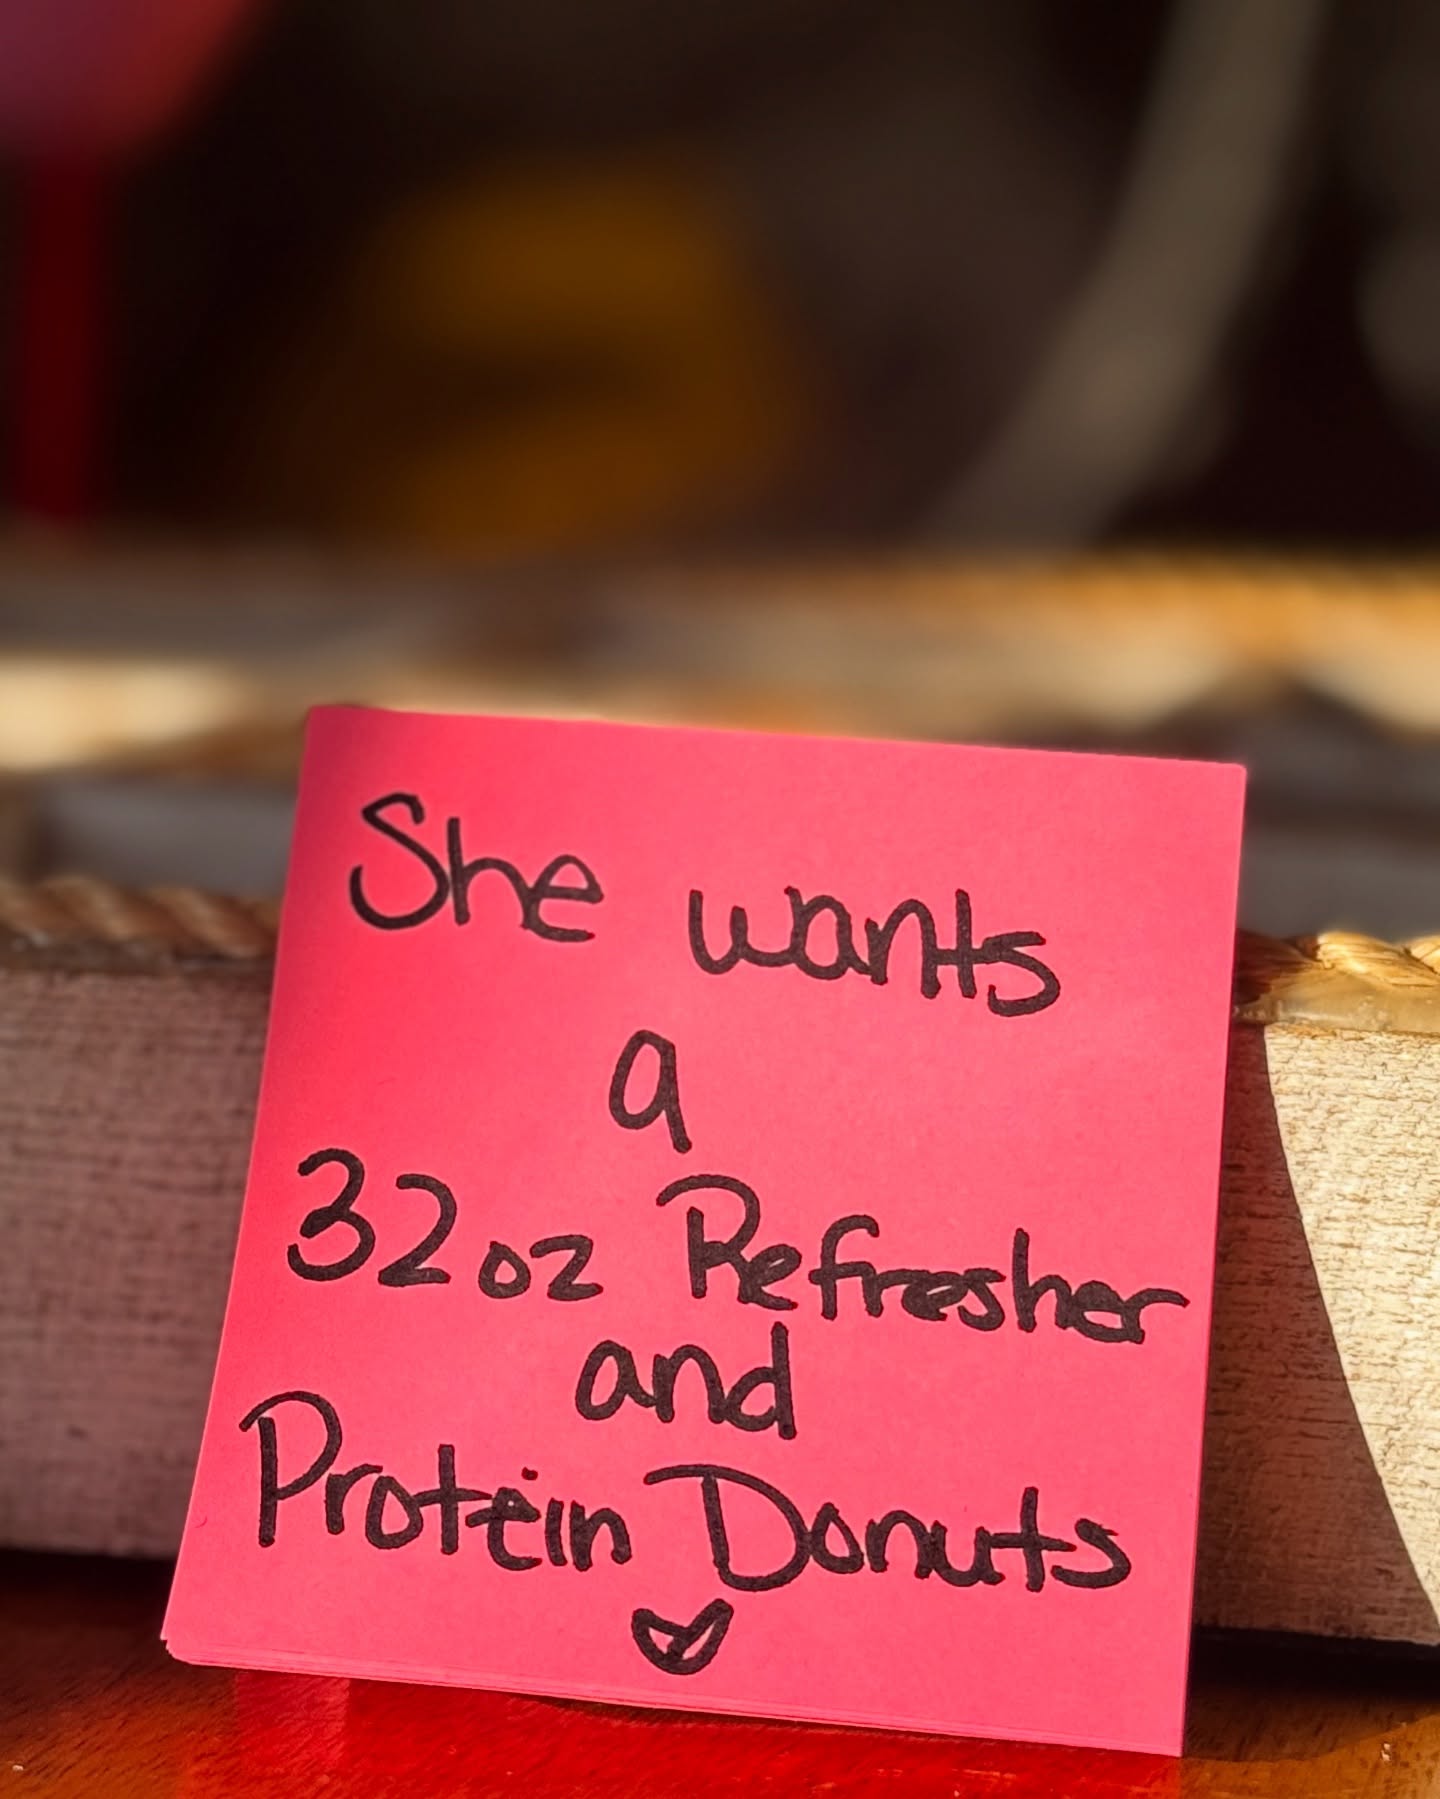 She wants
a
32oz Refresher
and
Protein Donuts